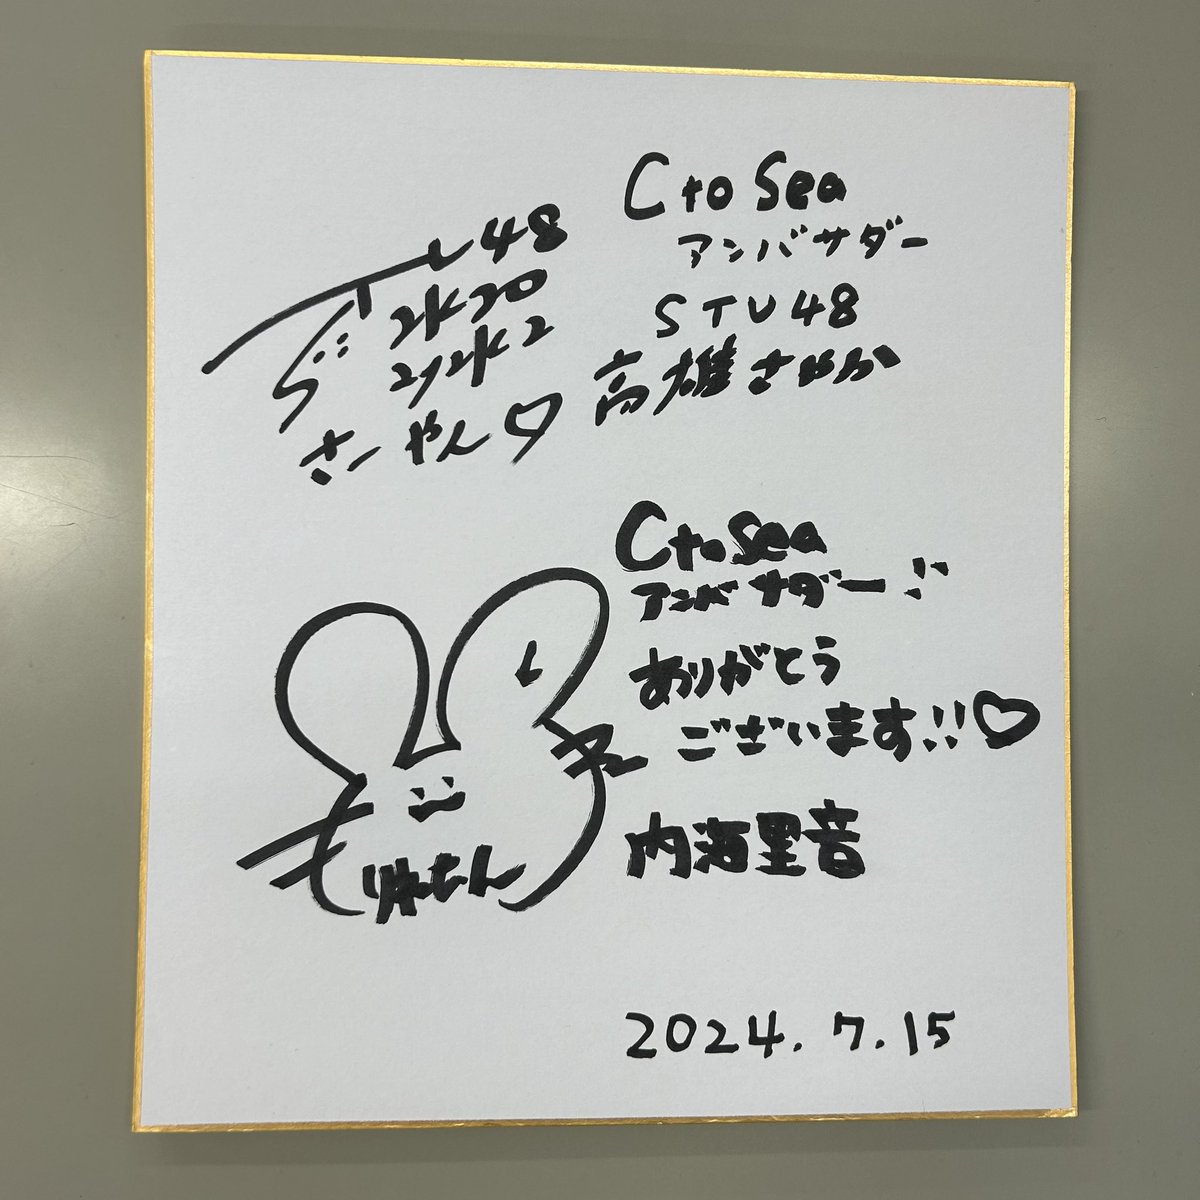 C to Sea
アンバサダー
STU48
高雄さやか
48
さーやん♡
C to Sea
アンバサダー
ありがとう
ございます!!♡
内海里音
りねちん
2024.7.15